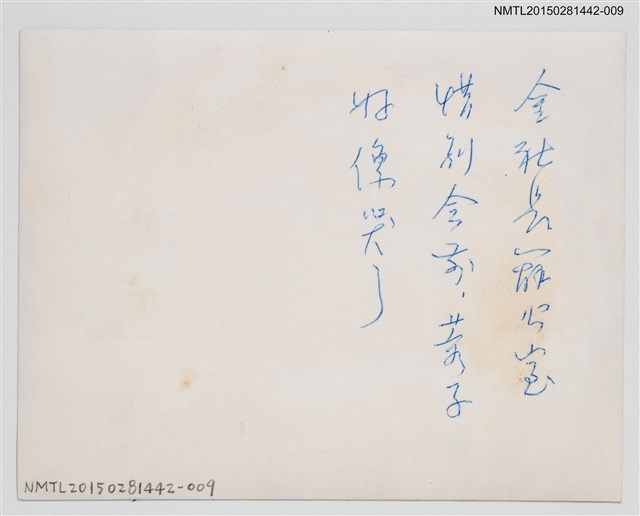 NMTL20150281442-009
金社長辦公室
惜別会前，蓉子
好像哭了
NMTL20150281442-009